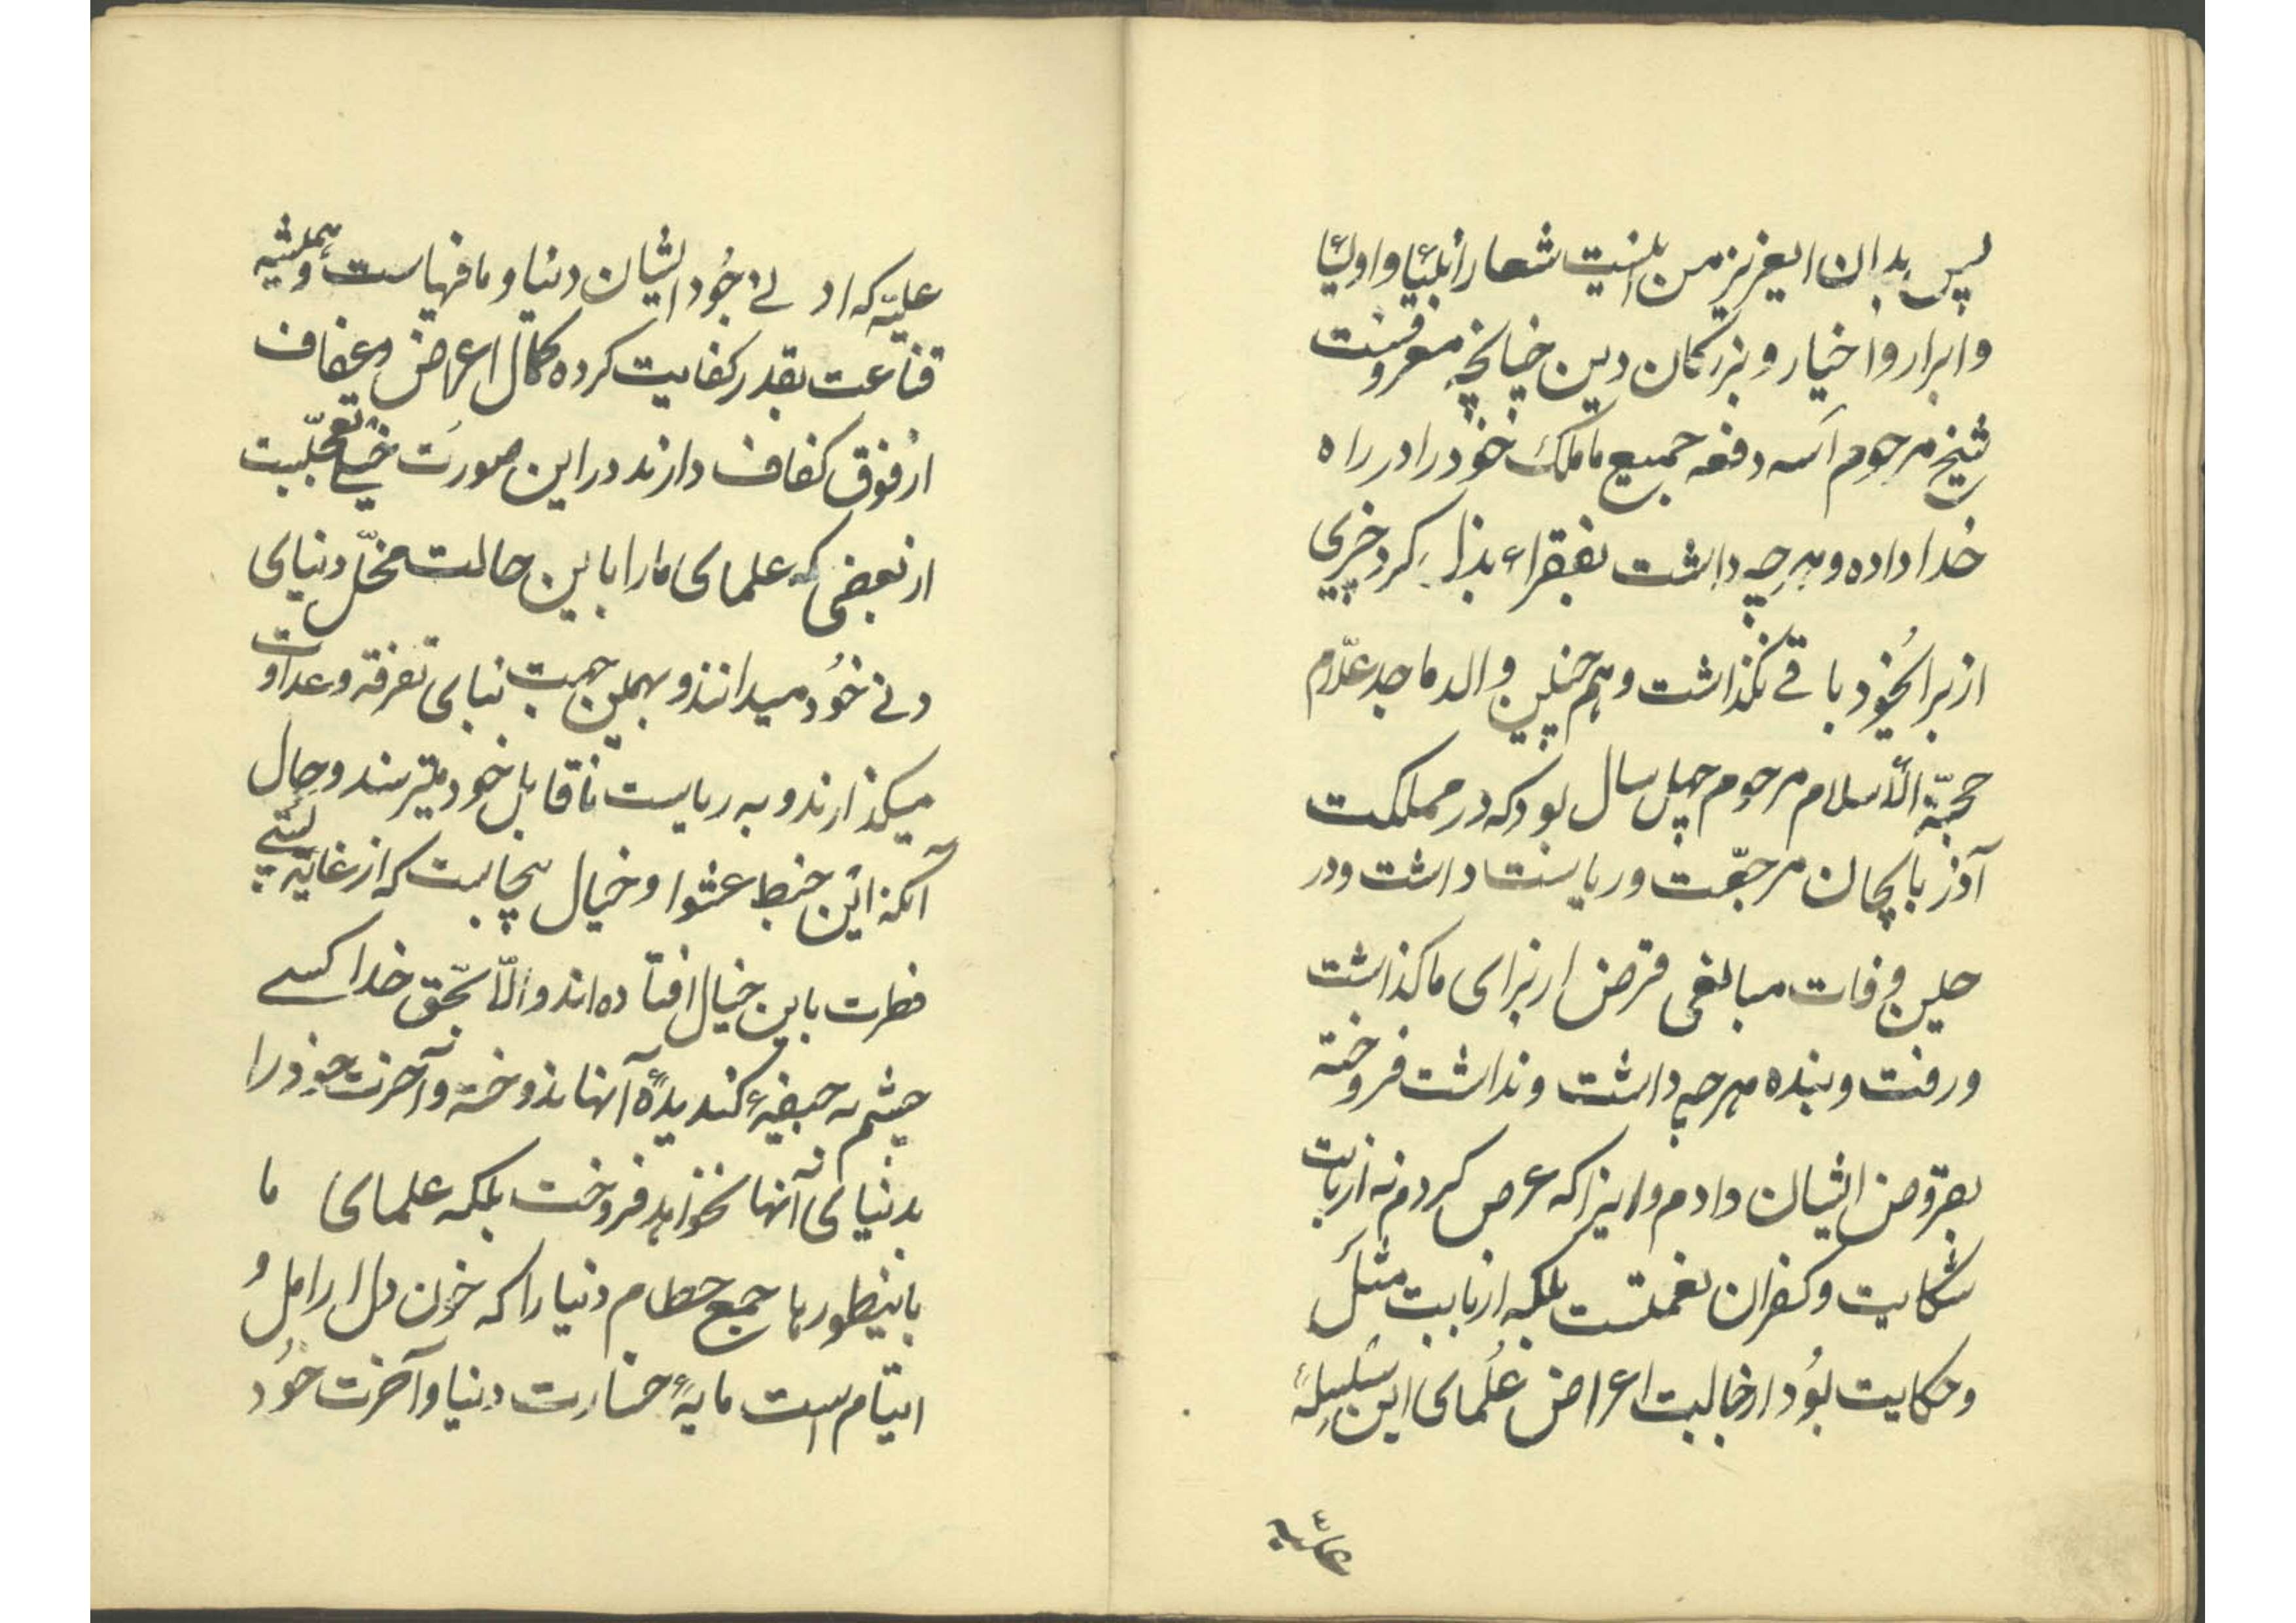 پس بدان ایعزیز من اینست شعار انبیاء و اولیاء
و ابرار و اخیار و بزرگان دین چنانچه معروفست
شیخ مرحوم سه دفعه جمیع ماملک خود را در راه
خدا داده و هرچه داشت بفقراء بذل کرد چیزی
از برای خود باقی نگذاشت و هم چنین والد ماجد علّام
حجّة الأسلام مرحوم چهل سال بود که در مملکت
آذربایجان مرجعیّت و ریاست داشت و در
حین وفات مبالغی قرض از برای ما گذاشت
و رفت و بنده هر چه داشت و نداشت فروخته
بقروض ایشان دادم و اینرا که عرض کردم نه از بابت
شکایت و کفران نعمتست بلکه از بابت مثل
و حکایت بود از حالت اعراض علمای این سلسلهٔ
علیّه
علیّه که ادنی جود ایشان دنیا و مافیهاست و همیشه
قناعت بقدر کفایت کرده کمال اعراض و عفاف
از فوق کفاف دارند در این صورت خیلی تعجّبست
از بعضی که علمای ما را با این حالت مخلّ دنیای
دنی خود میدانند و بهمین جهت بنای تفرقه و عداوت
میگذارند و به ریاست ناقابل خود میترسند و حال
آنکه این خبط عشوا و خیال بیجاست که از غایة پستی
فطرت باین خیال افتاده اند و الّا بحق خدا کسی
چشم به جیفهٔ گندیدهٔ آنها ندوخته و آخرت خود را
بدنیای آنها نخواهد فروخت بلکه علمای ما
باینطورها جمع حطام دنیا را که خون دل ارامل و
ایتام است مایهٔ خسارت دنیا و آخرت خود